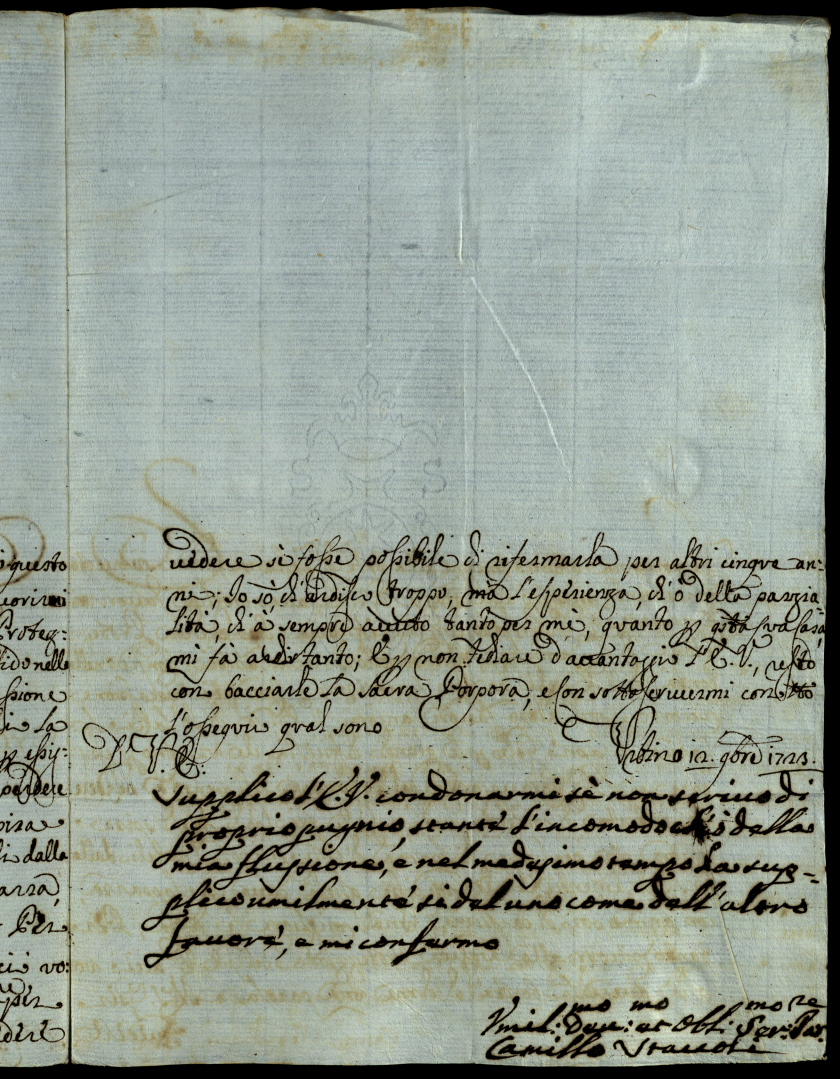 i questo
vorirmi
Proteg:
fido nelle
ssione
i la
p essig-
perdere
pira
i dalla
arra,
Per
cii vo:
per
dere
vedere sè fosse possibile di rifermarla per altri cinque an:
ni; Io sò, ch'ardisco troppo, mà l'esperienza, ch'ò della parzia:
lità, ch'à sempre avuto tanto per mè, quanto p qsta sua Casa
mi fà ardir tanto; E p non tediare d'avantaggio l'E.V., resto
con bacciarle La Sacra Porpora, e con sottoscrivermi con tto
l'ossequio qual sono
D. V. E.
Urbino 12. 9bre 1723.
Supplico l'E.V. condonarmi sè non scrivo di
proprio pugnio, stante l'incomodo ch'ò della
mia flussione, e nel medesimo tempo La sup-
plico umilmente sì del uno come dell'altro
favore, e mi confermo
Umil:mo Dev:mo et Obl:mo Ser:re
Camillo Staccoli